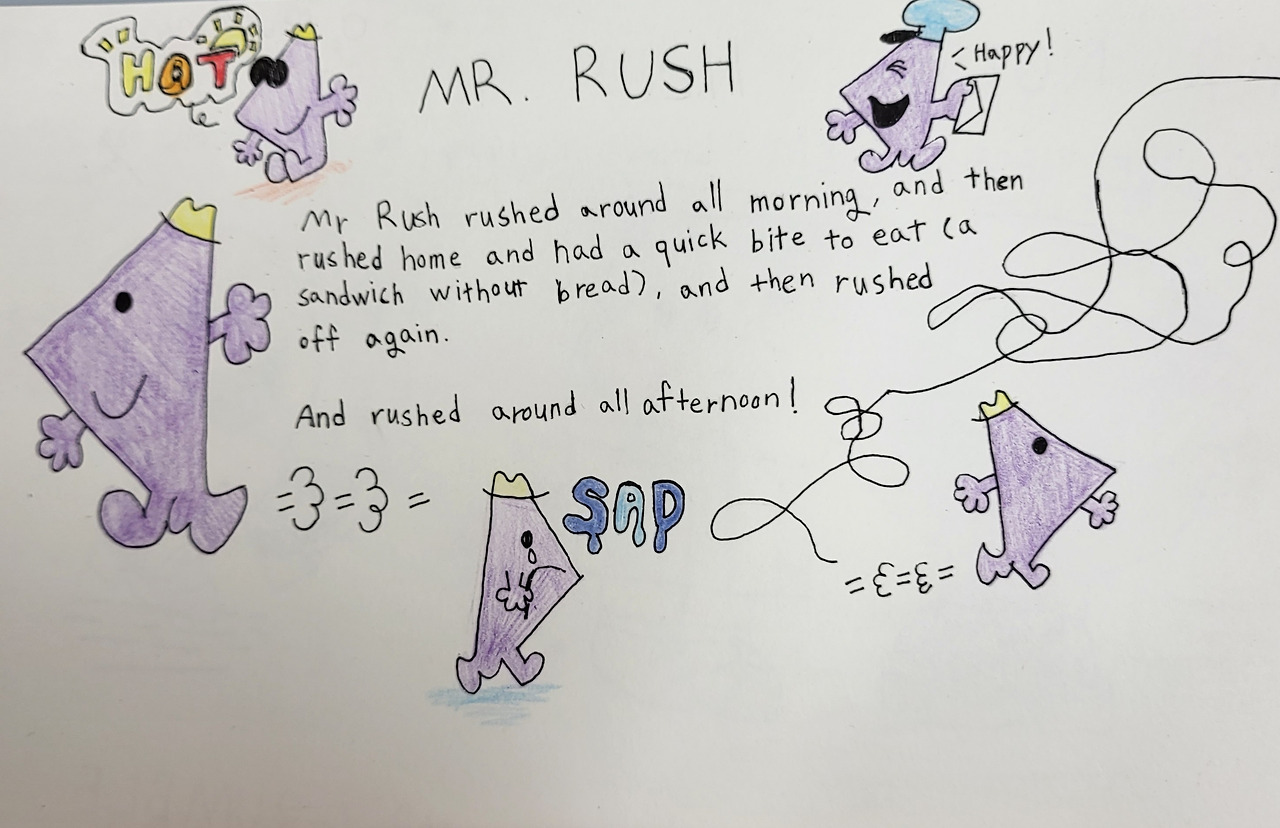 HOT
MR. RUSH
Happy!
Mr Rush rushed around all morning, and then
rushed home and had a quick bite to eat (a
sandwich without bread), and then rushed
off again.
And rushed around all afternoon!
SAD